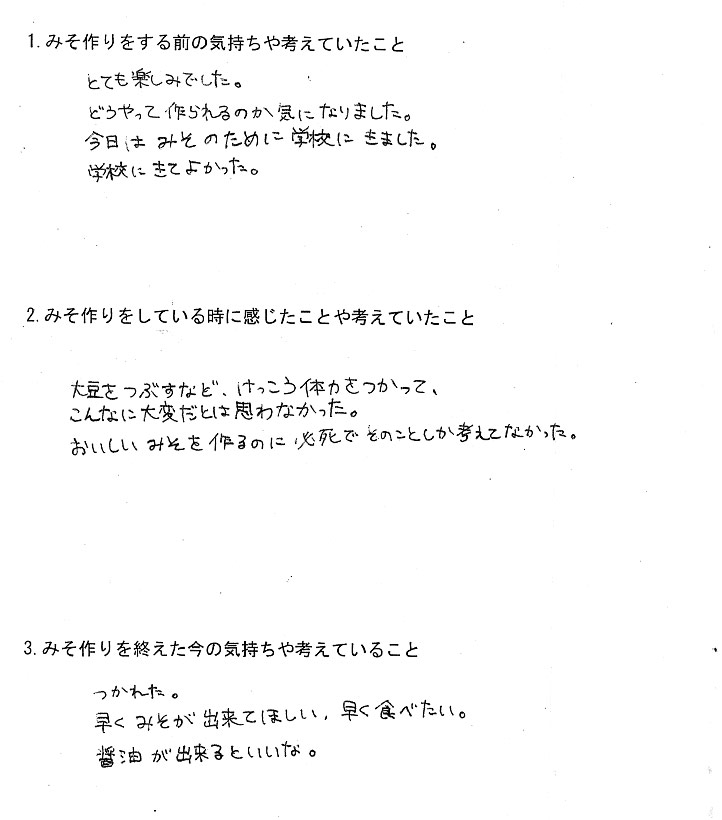 1. みそ作りをする前の気持ちや考えていたこと
とても楽しみでした。
どうやって作られるのか気になりました。
今日はみそのために学校にきました。
学校にきてよかった。
2. みそ作りをしている時に感じたことや考えていたこと
大豆をつぶすなど、けっこう体力をつかって、
こんなに大変だとは思わなかった。
おいしいみそを作るのに必死でそのことしか考えてなかった。
3. みそ作りを終えた今の気持ちや考えていること
つかれた。
早くみそが出来てほしい、早く食べたい。
醤油が出来るといいな。